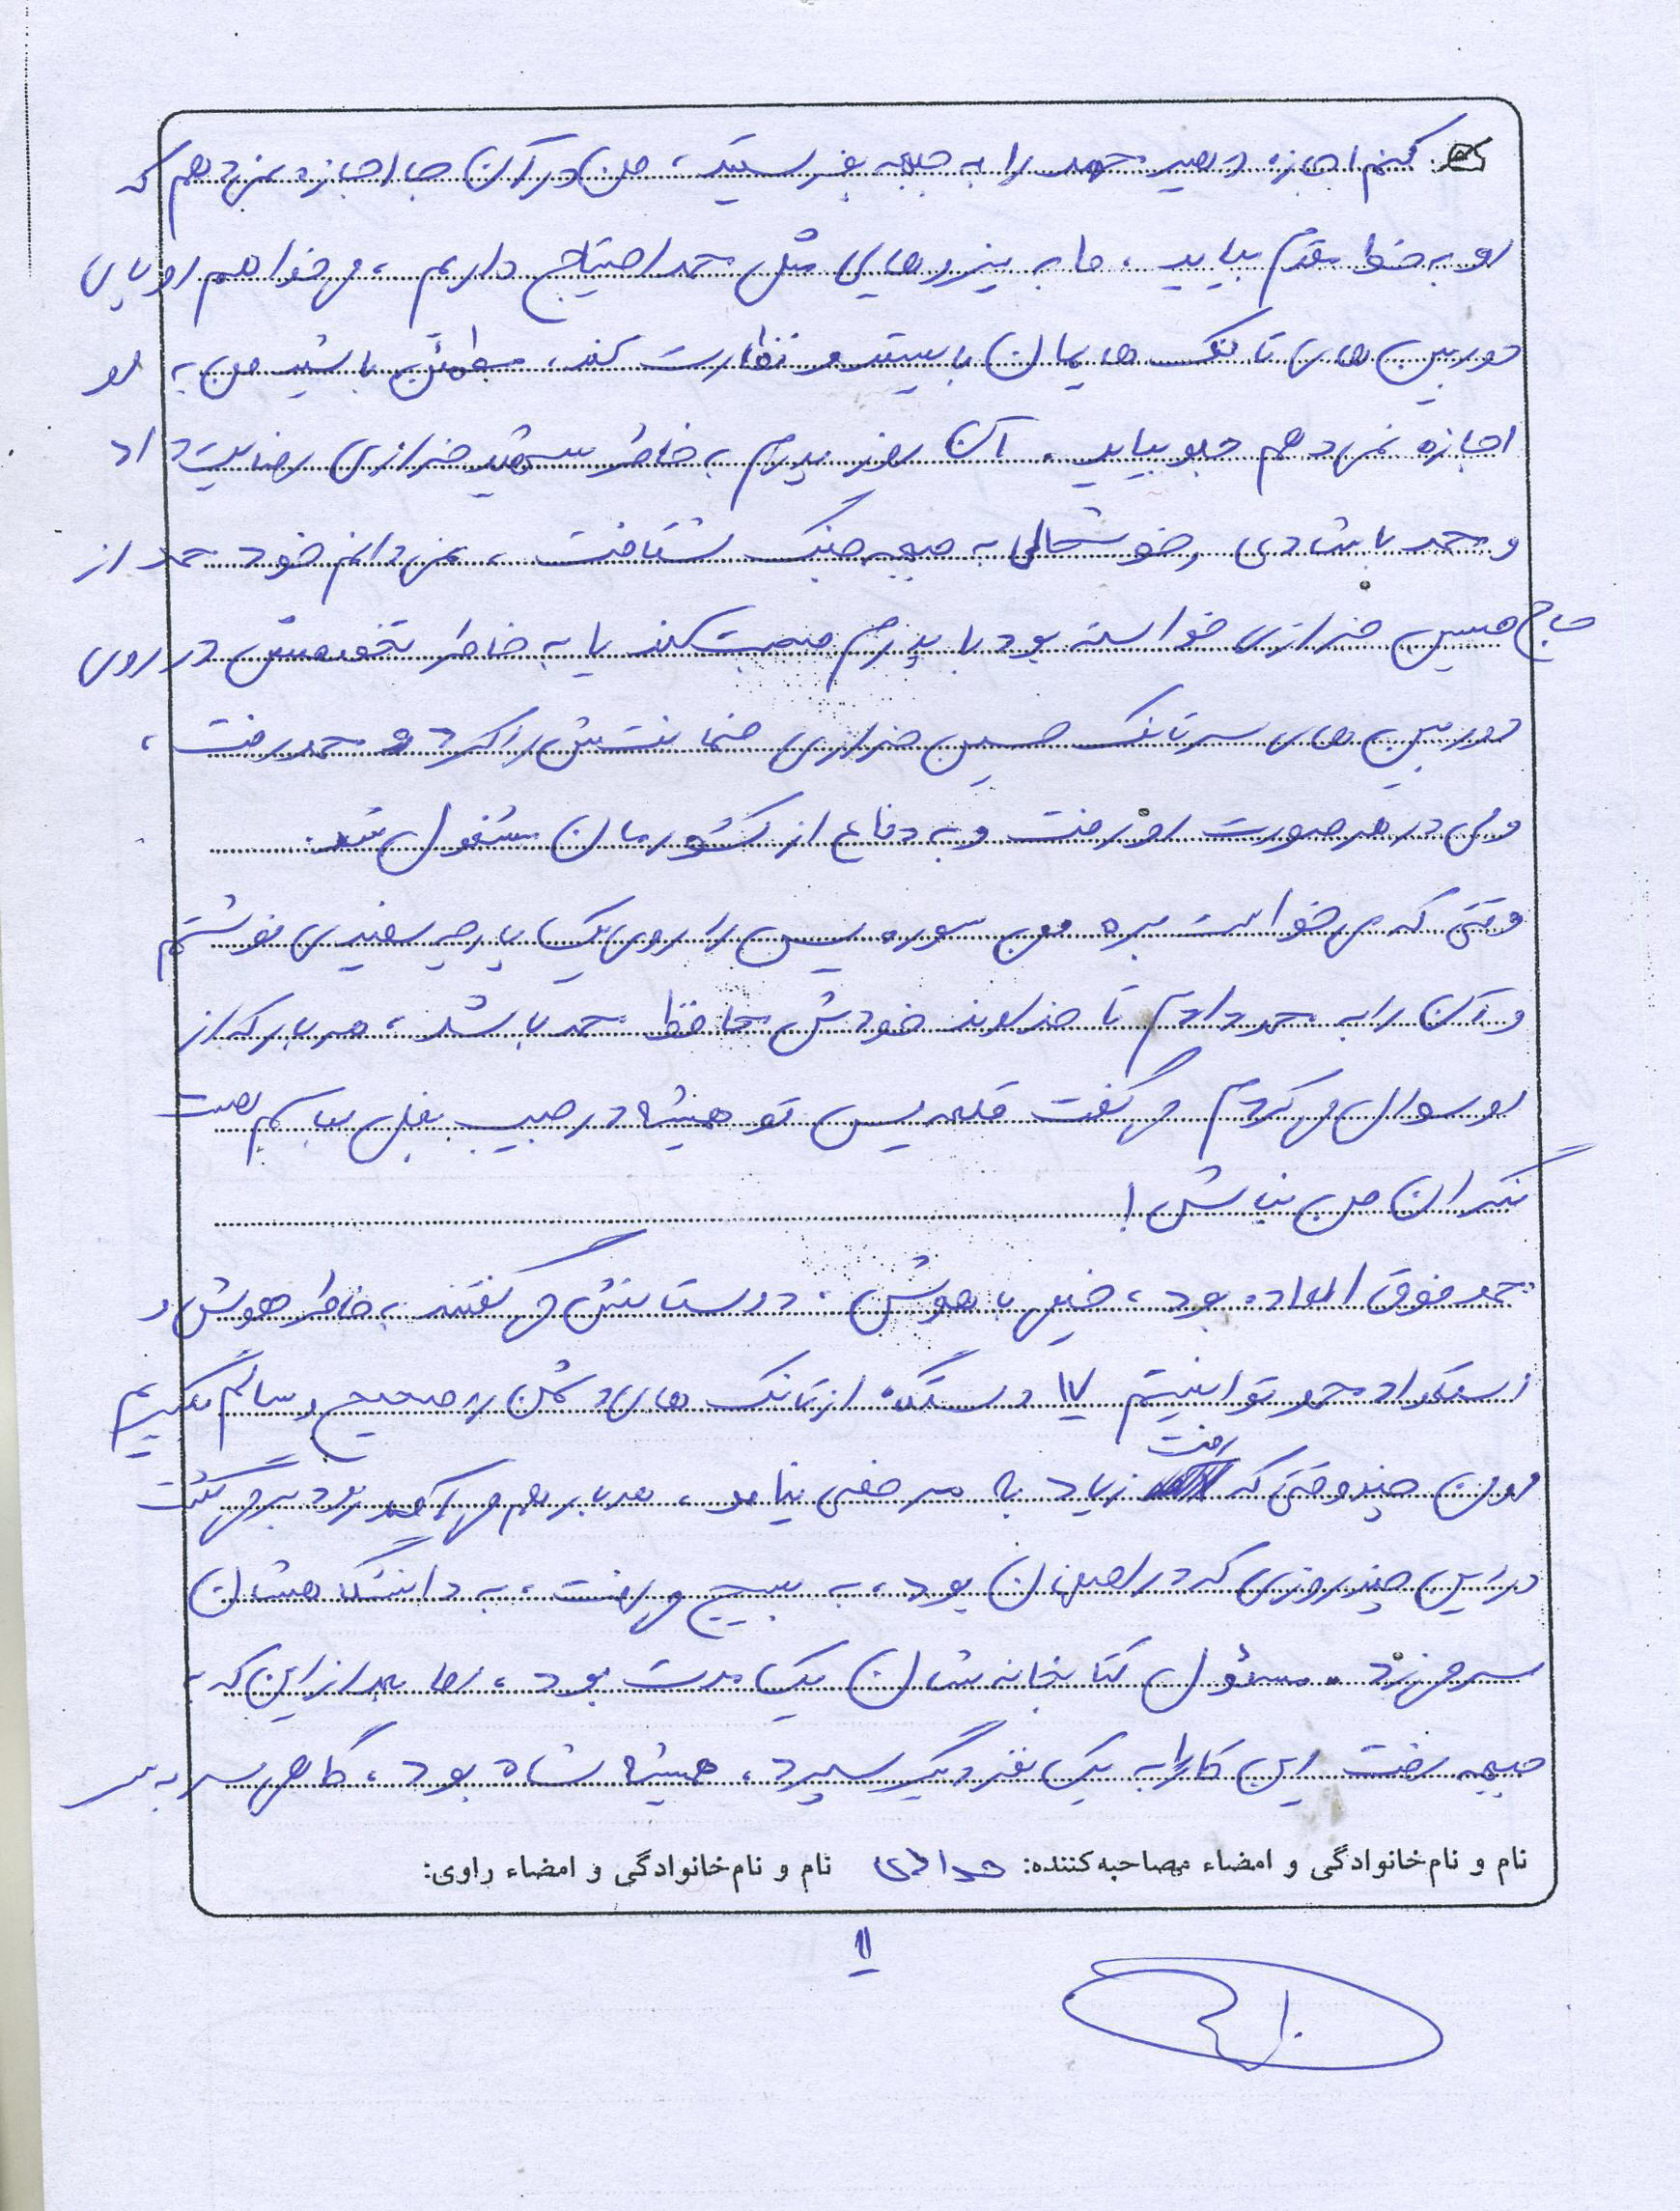 کنم اجازه دهید محمد را به جبهه بفرستید، من در آن جا اجازه نمی‌دهم که
او به خط مقدم بیاید. ما به نیروهای مثل محمد احتیاج داریم، می خواهم او پای
دوربین های تانک هایمان بایستد و نظارت کند، مطمئن باشید من به او
اجازه نمی دهم جلو بیاید. آن روز پدرم به خاطر شهید خرازی رضایت داد
و محمد با شادی و خوشحالی به جبهه جنگ شتافت، نمی دانم خود محمد از
حاج حسین خرازی خواسته بود با پدرم صحبت کند یا به خاطر تخصصش در روی
دوربین های سر تانک حسین خرازی ضمانتش را کرد و محمد رفت،
ولی در هر صورت او رفت و به دفاع از کشورمان مشغول شد.
وقتی که می خواست بره من سوره یس را روی یک پارچه سفیدی نوشتم
و آن را به محمد دادم تا خداوند خودش محافظ محمد باشد، هر بار که از
او سوال می کردم می گفت قلعه یس تو همیشه در جیب بغل لباسم هست
نگران من نباش!
محمد فوق العاده بود، خیلی باهوش، دوستانش می گفتند به خاطر هوش و
استعداد محمد توانستیم ۱۷ دستگاه از تانک های دشمن را صحیح و سالم بگیریم
اون چند وقتی که رفت زیاد به مرخصی نیامد، هر بار هم می آمد زود بر می گشت
در این چند روزی که در اصفهان بود، به بسیج می رفت، به دانشگاهشان
سر می زد. مسئول کتابخانه شان یک مدت بود، اما بعد از این که به
جبهه رفت این کار را به یک نفر دیگر سپرد، همیشه شاد بود، گاهی سر به سر
نام و نام خانوادگی و امضاء مصاحبه کننده: نام و نام خانوادگی و امضاء راوی:
۱۱